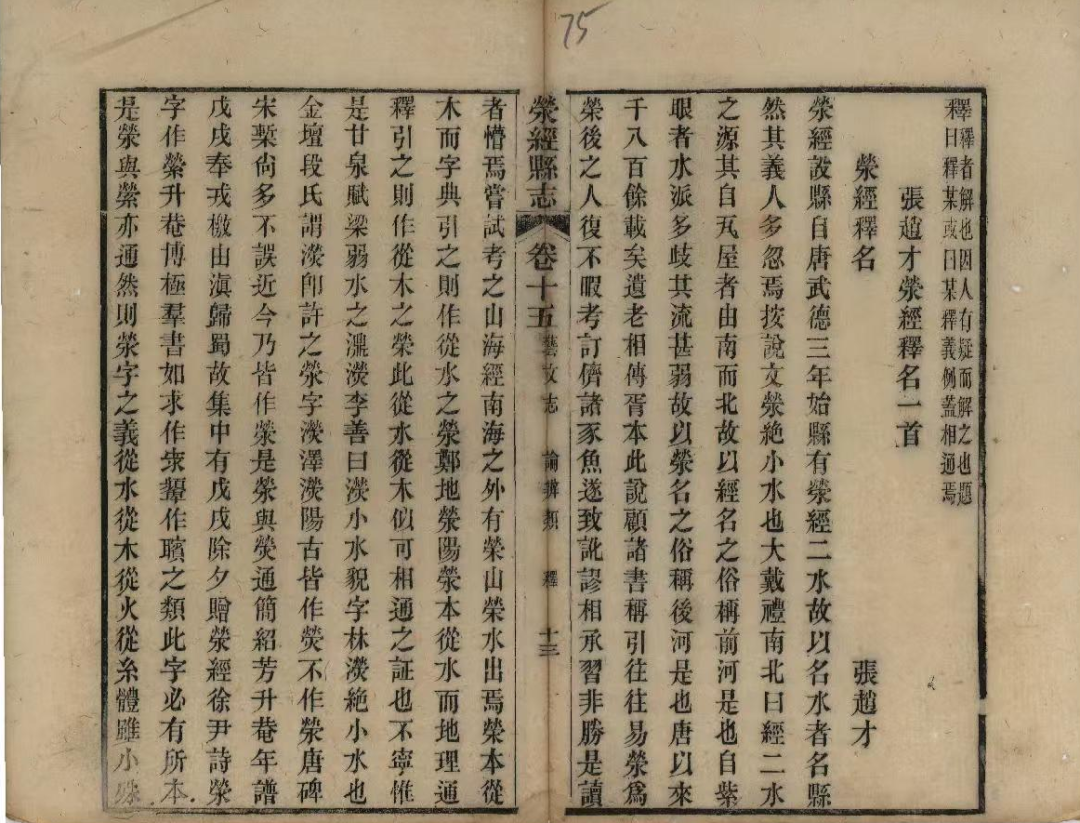 75
釋釋者解也因人有疑而解之也題
曰釋某或曰某釋義例蓋相通焉
張趙才滎經釋名一首
滎經釋名 張趙才
滎經設縣自唐武德三年始縣有滎經二水故以名水者名縣
然其義人多忽焉按說文滎絶小水也大戴禮南北曰經二水
之源其自瓦屋者由南而北故以經名之俗稱前河是也自紫
眼者水派多歧其流甚弱故以滎名之俗稱後河是也唐以來
千八百餘載矣遺老相傳胥本此說顧諸書稱引往往易滎爲
榮後之人復不暇考訂儕諸豕魚遂致訛謬相承習非勝是讀
滎經縣志 卷十五 藝文志 論辨類 釋 十三
者懵焉嘗試考之山海經南海之外有榮山榮水出焉榮本從
木而字典引之則作從水之滎鄭地滎陽滎本從水而地理通
釋引之則作從木之榮此從水從木似可相通之証也不寧惟
是甘泉賦梁弱水之濎濙李善曰濙小水貌字林濙絶小水也
金壇段氏謂濙卽許之滎字濙澤濙陽古皆作熒不作滎唐碑
宋槧尙多不誤近今乃皆作滎是滎與熒通簡紹芳升菴年譜
戊戌奉戎檄由滇歸蜀故集中有戊戌除夕贈滎經徐尹詩滎
字作縈升菴博極羣書如求作衆顰作矉之類此字必有所本
是滎與縈亦通然則滎字之義從水從木從火從糸體雖小殊